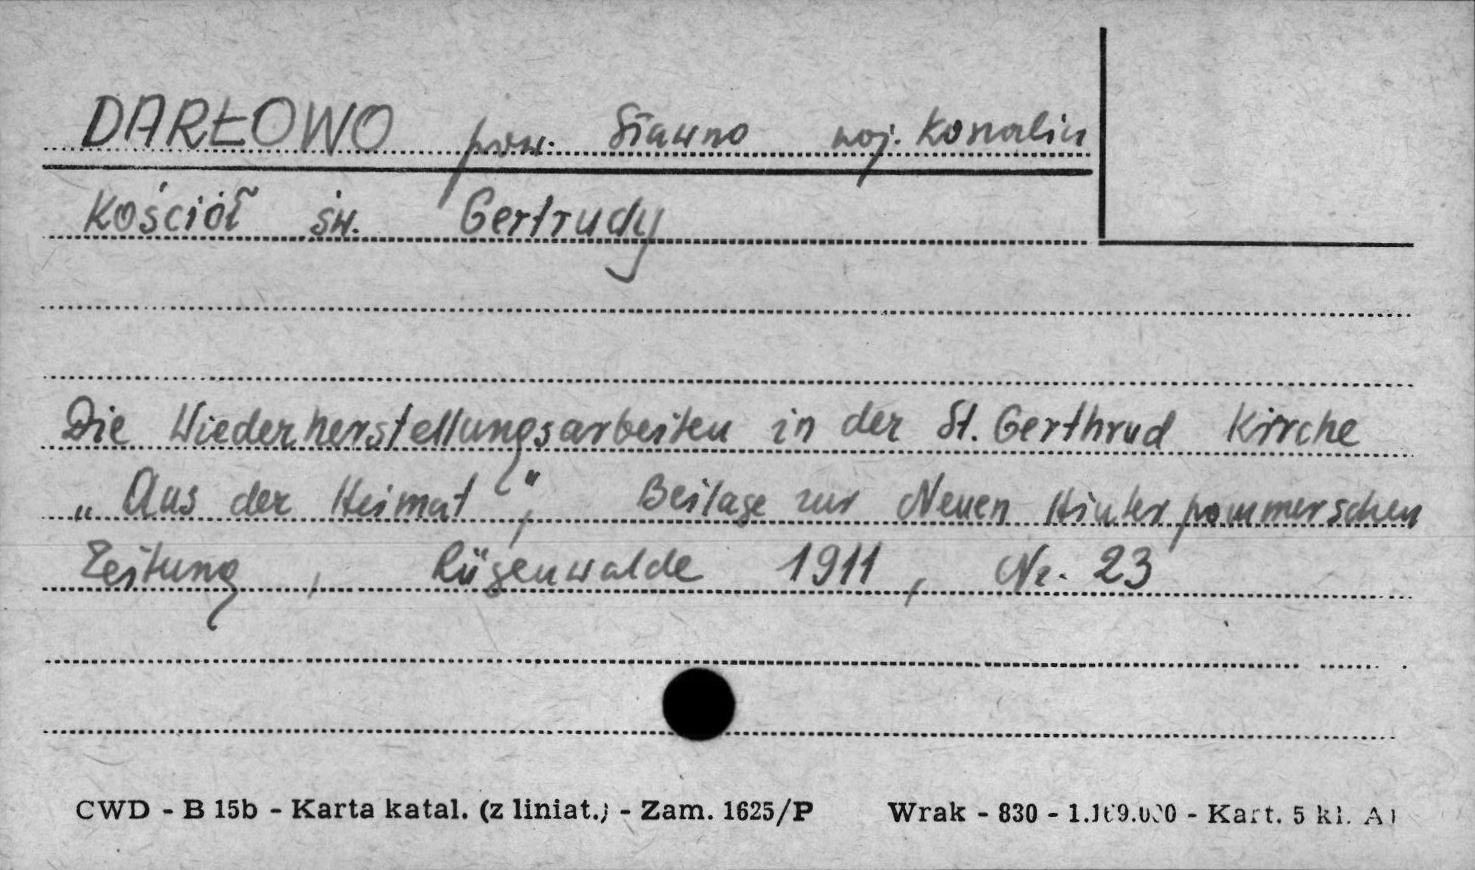 DARŁOWO pow. Sławno woj. Koszalin
Kościół św. Gertrudy
Die Wiederherstellungsarbeiten in der St. Gerthrud Kirche
„Aus der Heimat“, Beilage zur Neuen Hinterpommerschen
Zeitung, Rügenwalde 1911, Nr. 23
CWD - B 15b - Karta katal. (z liniat.) - Zam. 1625/P Wrak - 830 - Kart. 5 kl. A1